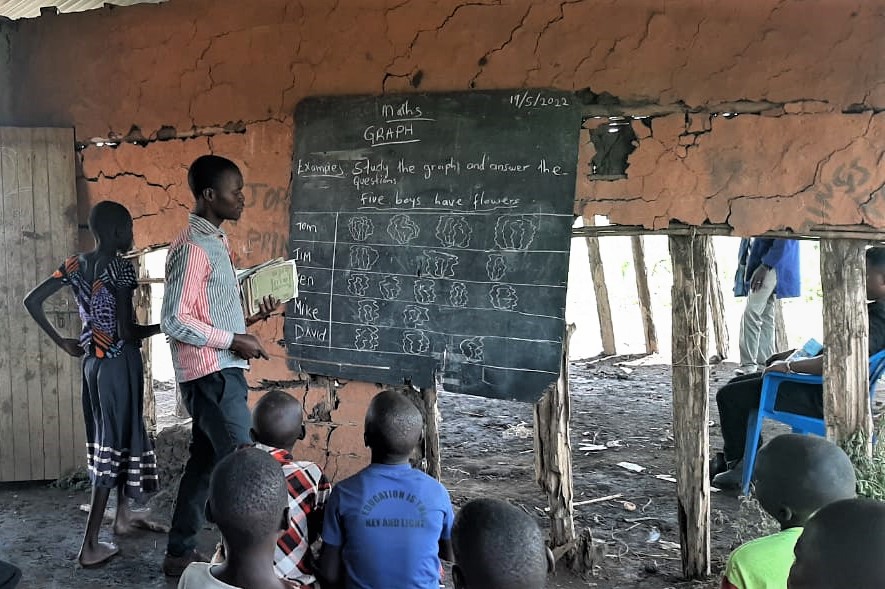 Maths 19/5/2022
GRAPH
Example; Study the graph and answer the
Questions
Five boys have flowers.
Tom
Jim
Ken
Mike
David
EDUCATION IS
KEY AND LIGHT